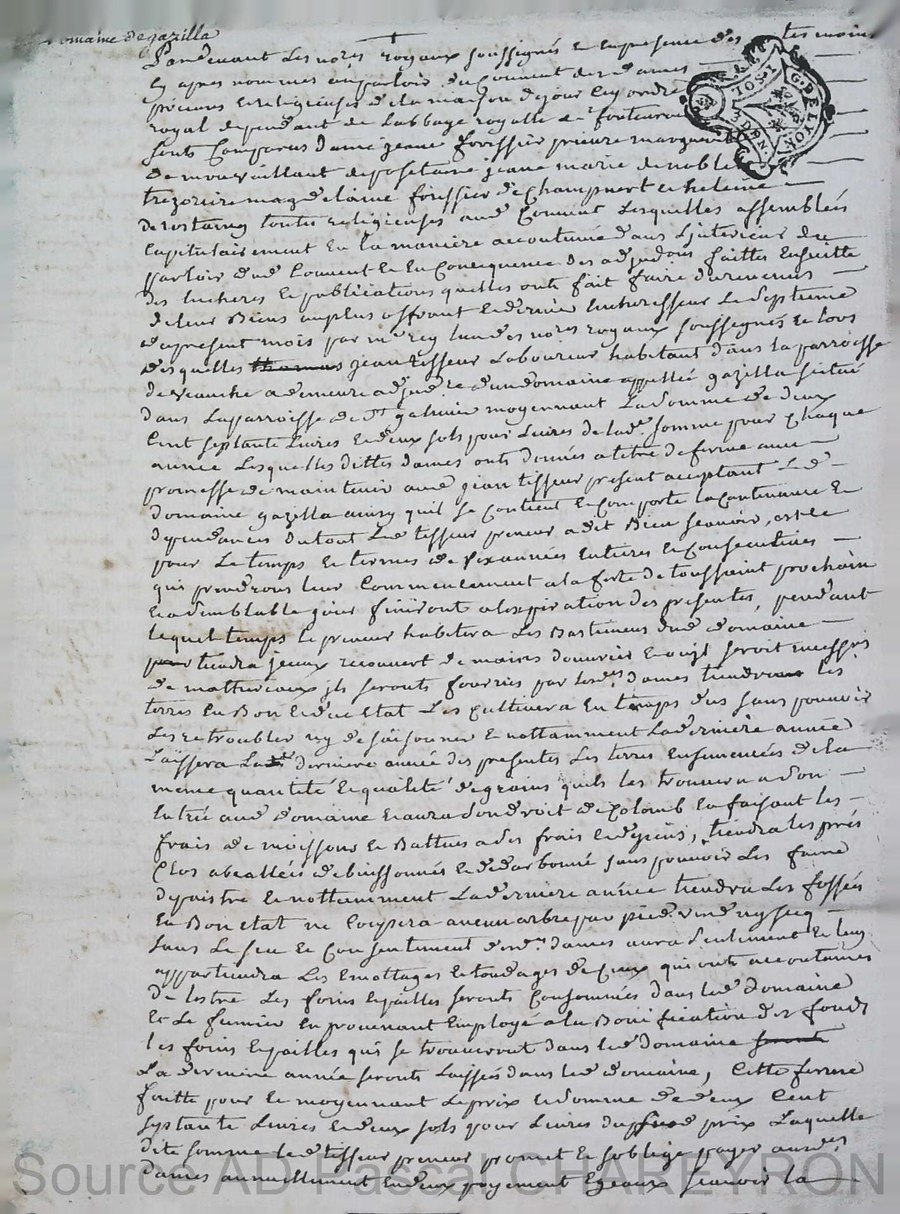 Domaine de gazilla
Pardevant Les nores royaux soussignés et en presence des tesmoins
Cy apres nommés au parloir du Couvent des dames
prieure et religieuses de la maison de jourcey ordre
royal dependant de Labbaye royalle de fonteuraud
sonts Comparus dame jeane forissier prieure marguerite
depositaire jeane marie de noble
trezoriere magdelaine forissier de Champvert et helene
de rostaing toutes religieuses aud Couvent Lesquelles assemblées
Capitulairement En la maniere accoutumée dans Linterieur du
parloir dud Couvent Et En Consequence des adjudons faittes Ensuitte
des Encheres et publications quelles onts fait faire
de leur Biens au plus offrant et dernier Encherisseur Le septieme
du present mois par me rey Lun des nores royaux soussignés Et Lors
desquelles thomas jean tisseur Laboureur habitant dans la parroisse
de veauche a demeuré adjudre dun domaine appellée gazilla scitué
dans Laparroisse de St galmier moyennant La somme de deux
Cent septante Livres Et deux sols pour Livres de lade somme pour Chaque
année Lesquelles dittes dames onts donnés a titre de ferme avec
promesse de maintenir aud jean tisseur present acceptant Led
domaine gazilla ainsy quil se Contient Et Comporte La Contenance Et
dependances du tout Led tisseur preneur a dit Bien scavoir, est Ce
pour Le temps Et termes de six années Entieres Et Consecutives
qui prendronts leur Commencement a la feste de toussaint prochain
Et a semblable jour finiront a lexpiration des presentes, pendant
lequel temps le preneur habitera Les Bastimens dud domaine
pour tiendra jceux recouvert de mains douvrier Et ou jl seroit necessres
de matheriaux jls seronts fournies par lesdes dames tiendra les
terres En Bon Et deu Etat Les Cultivera En temps dus sans pouvoir
Les retroubler ny dessaisonner Et nottamment La derniere année
Laissera La derniere année des presentes Les terres Ensemencées de la
meme quantité Et qualité de grains quil les trouvera a son
Entrée aud domaine Et aura son droit de Colomb En faisant les
frais de moissons Et Batture a ses frais
clos de buissonnée sans pouvoir Les faire
depaistre Et nottamment La derniere année tiendra Les fossés
En Bon Etat ne Coupera aucun arbre par pied verd ny secq
sans Le sceu Et Consentement desdes dames aura seulement Et luy
appartiendra Les Emottages Et tondages de Ceux qui onts accoutumés
de Lestre Les foins Et pailles seronts Consommées dans led domaine
Et Le fumier En provenant Employé a la Bonification des fonds
les foins Et pailles qui se trouveront dans led domaine seronts
La derniere année seronts Laissés dans led domaine, Cette ferme
faitte pour Et moyennant Le prix Et somme de deux Cent
septante Livres Et deux sols pour Livres dud prix Laquelle
dite somme led tisseur preneur promet Et soblige payer auxdes
dames annuellement En deux payement Egeaux scavoir la
G. DE LYON
3 DEN.
Source AD Pascal CHAREYRON